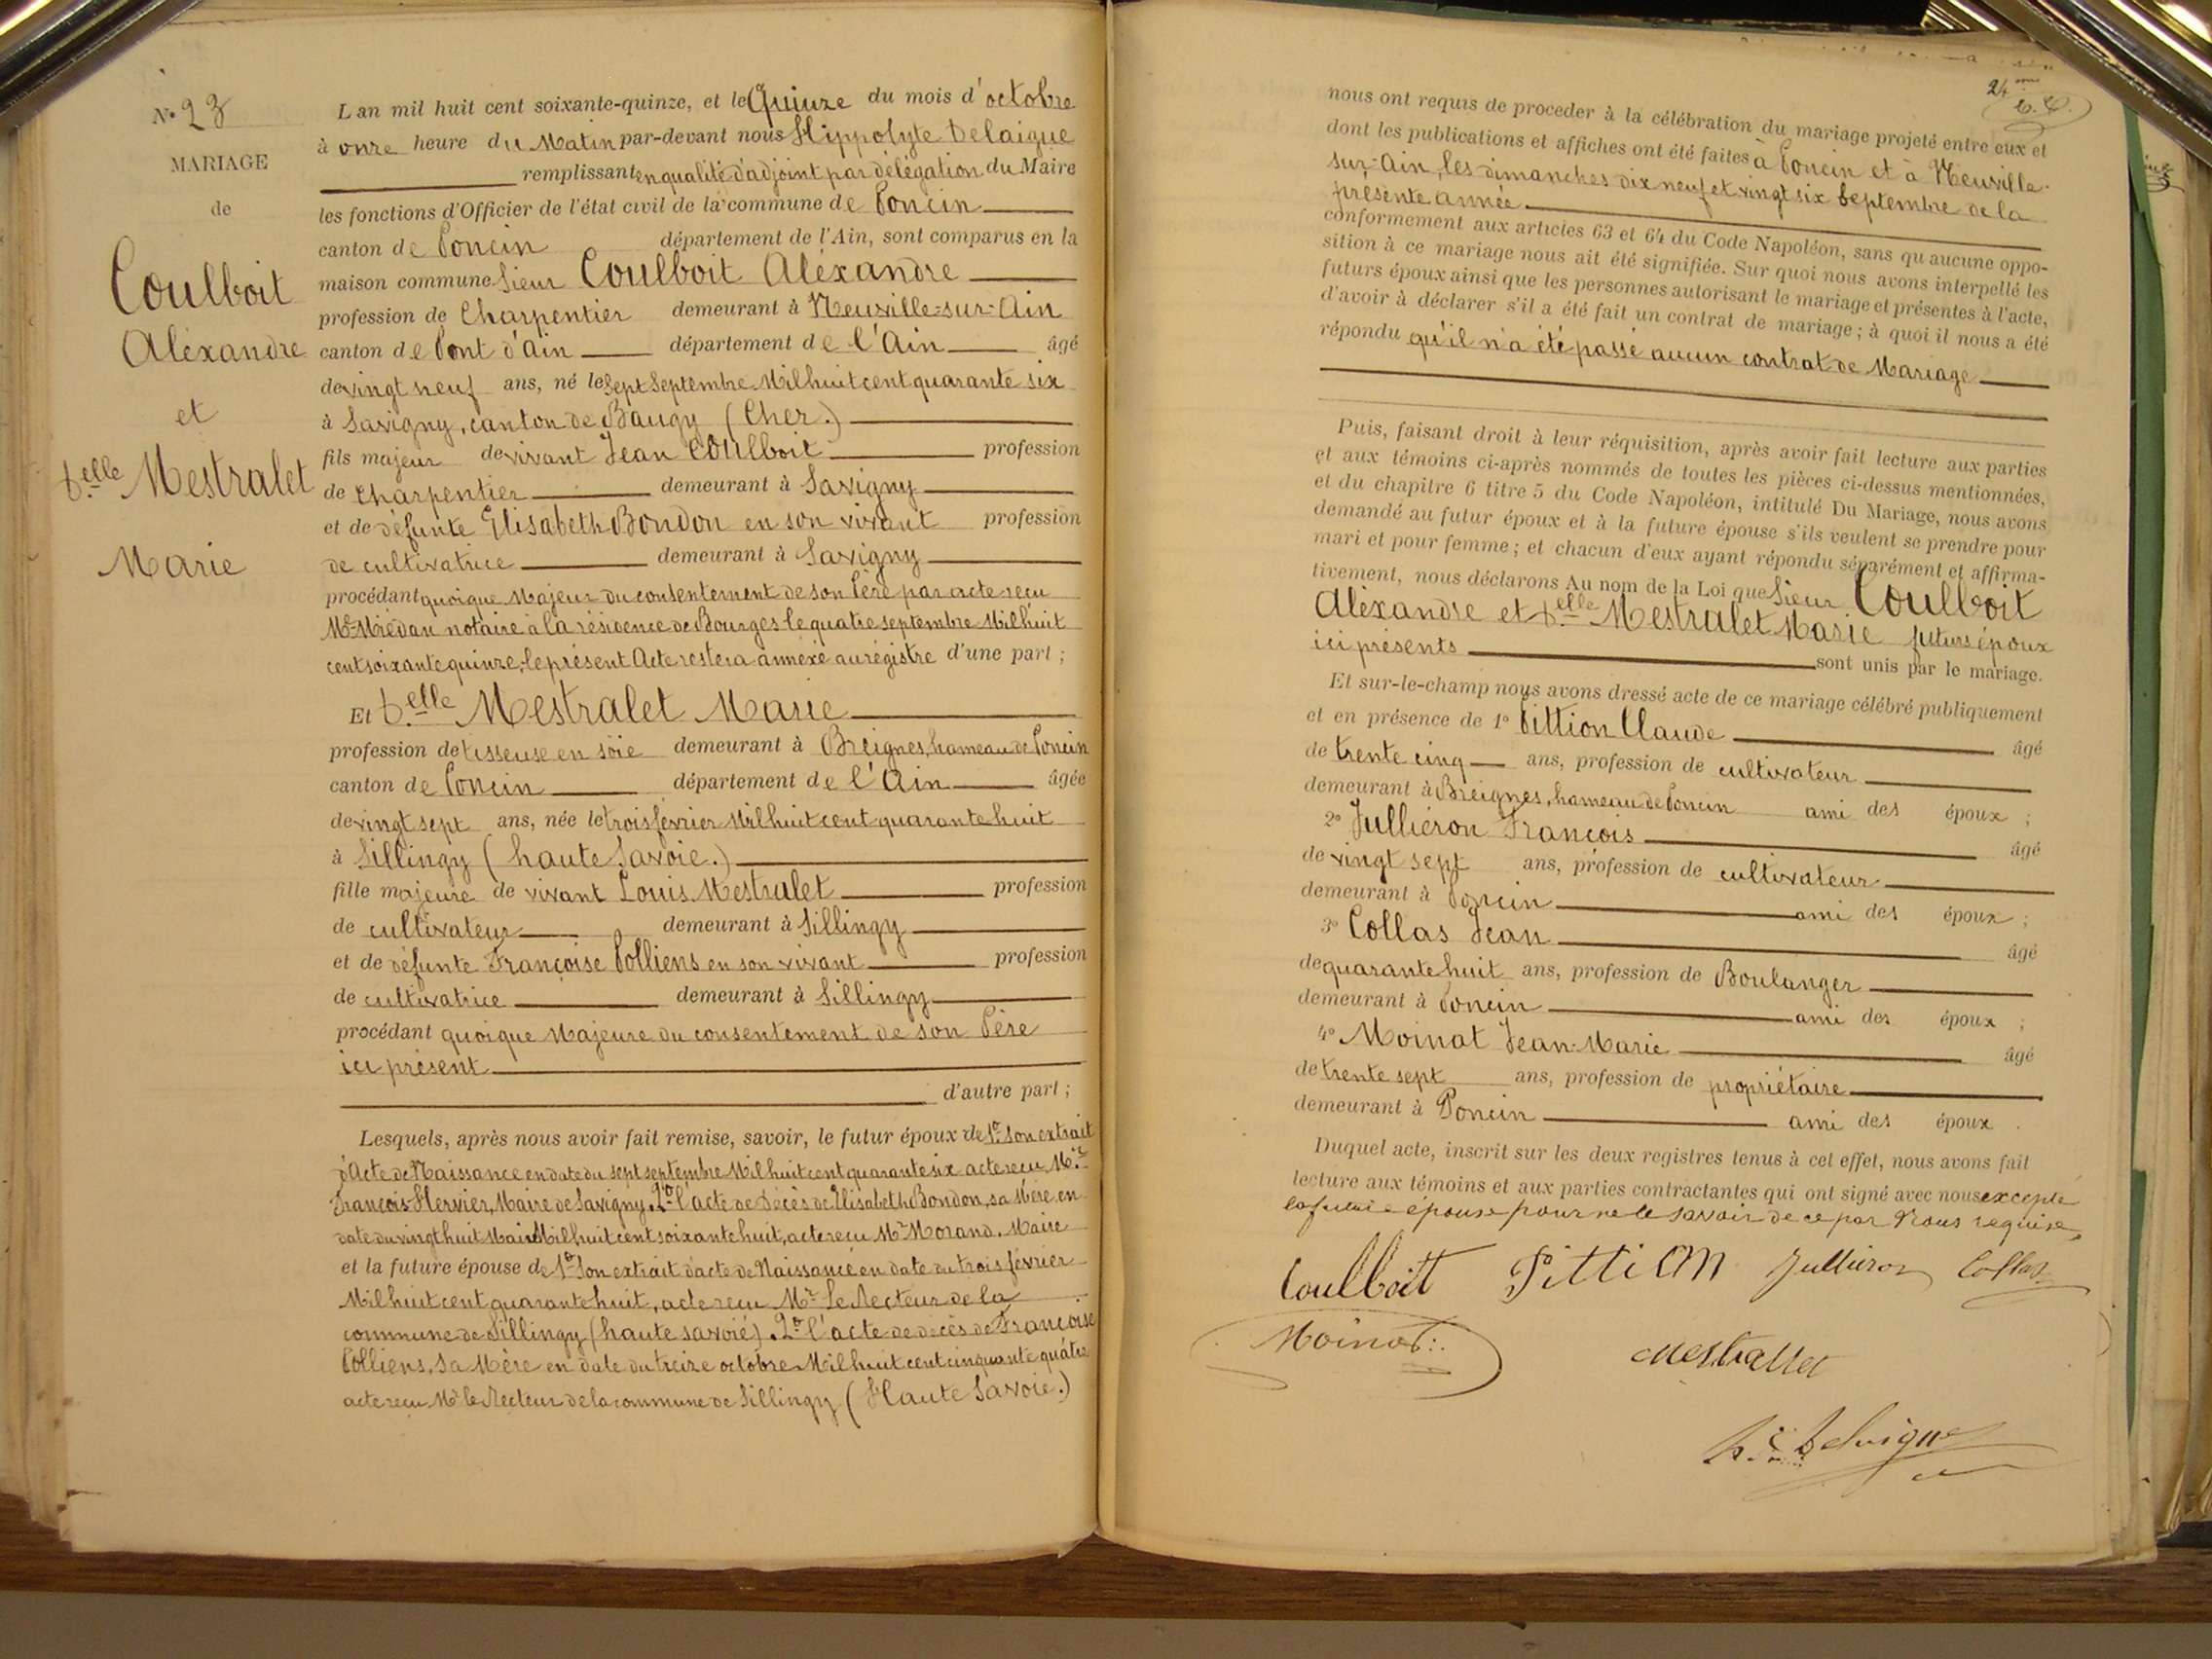 N° 23
MARIAGE
de
Coulboit
Aléxandre
et
Delle Mestralet
Marie
L'an mil huit cent soixante-quinze, et le Quinze du mois d'octobre
à onze heure du Matin par-devant nous Hippolyte Delaigue
remplissant en qualité d'adjoint par délégation du Maire
les fonctions d'Officier de l'état civil de la commune de Poncin
canton de Poncin département de l'Ain, sont comparus en la
maison commune Sieur Coulboit Aléxandre
profession de Charpentier demeurant à Neuville-sur-Ain
canton de Pont d'Ain département de l'Ain âgé
de vingt neuf ans, né le Sept Septembre Mil huit cent quarante six
à Savigny, canton de Baugy (Cher.)
fils majeur de vivant Jean Coulboit profession
de Charpentier demeurant à Savigny
et de défunte Elisabeth Bondon en son vivant profession
de cultivatrice demeurant à Savigny
procédant quoique Majeur du consentement de son Père par acte reçu
Me Mredau notaire à la résidence de Bourges le quatre septembre Mil huit
cent soixante quinze, le présent Acte restera annéxé au régistre d'une part ;
Et Delle Mestralet Marie
profession de tisseuse en soie demeurant à Breignes, hameau de Poncin
canton de Poncin département de l'Ain âgée
de vingt sept ans, née le trois février Mil huit cent quarante huit
à Sillingy (haute Savoie.)
fille majeure de vivant Louis Mestralet profession
de cultivateur demeurant à Sillingy
et de défunte Françoise Colliens en son vivant profession
de cultivatrice demeurant à Sillingy
procédant quoique Majeure du consentement de son Père
ici présent
d'autre part ;
Lesquels, après nous avoir fait remise, savoir, le futur époux de 1° Son extrait
d'Acte de Naissance en date du sept septembre Mil huit cent quarante six acte reçu Mr
François Hervier, Maire de Savigny. 2° l'acte de décès de Elisabeth Bondon, sa Mère en
date du vingt huit Mai Mil huit cent soixante huit, acte reçu Mr Morand. Maire
et la future épouse de 1° Son extrait d'acte de Naissance en date du trois février
Mil huit cent quarante huit, acte reçu Mr Le Recteur de la
commune de Sillingy (haute savoie). 2° l'acte de décès de Françoise
Colliens, Sa Mère en date du treize octobre Mil huit cent cinquante quatre
acte reçu Mr le Recteur de la commune de Sillingy (Haute Savoie.)
24me
nous ont requis de proceder à la célébration du mariage projeté entre eux et
dont les publications et affiches ont été faites à Poncin et à Neuville-
sur-Ain, les dimanches dix neuf et vingt six Septembre de la
présente année
conformement aux articles 63 et 64 du Code Napoléon, sans qu'aucune oppo-
sition à ce mariage nous ait été signifiée. Sur quoi nous avons interpellé les
futurs époux ainsi que les personnes autorisant le mariage et présentes à l'acte,
d'avoir à déclarer s'il a été fait un contrat de mariage ; à quoi il nous a été
répondu qu'il n'a été passé aucun contrat de Mariage
Puis, faisant droit à leur réquisition, après avoir fait lecture aux parties
et aux témoins ci-après nommés de toutes les pièces ci-dessus mentionnées,
et du chapitre 6 titre 5 du Code Napoléon, intitulé Du Mariage, nous avons
demandé au futur époux et à la future épouse s'ils veulent se prendre pour
mari et pour femme ; et chacun d'eux ayant répondu séparément et affirma-
tivement, nous déclarons Au nom de la Loi que Sieur Coulboit
Aléxandre et Delle Mestralet Marie futurs époux
ici présents sont unis par le mariage.
Et sur-le-champ nous avons dressé acte de ce mariage célébré publiquement
et en présence de 1° Pittion Claude âgé
de trente cinq ans, profession de cultivateur
demeurant à Breignes, hameau de Poncin ami des époux ;
2° Julliéron François âgé
de vingt sept ans, profession de cultivateur
demeurant à Poncin ami des époux ;
3° Collas Jean âgé
de quarante huit ans, profession de Boulanger
demeurant à Poncin ami des époux ;
4° Moinat Jean-Marie âgé
de trente sept ans, profession de propriétaire
demeurant à Poncin ami des époux.
Duquel acte, inscrit sur les deux registres tenus à cet effet, nous avons fait
lecture aux témoins et aux parties contractantes qui ont signé avec nous excepté
la future épouse pour ne le savoir de ce par Nous requise
Coulboit Pittion Julliéron Collas
Moinat
Mestrallet
Delaigue